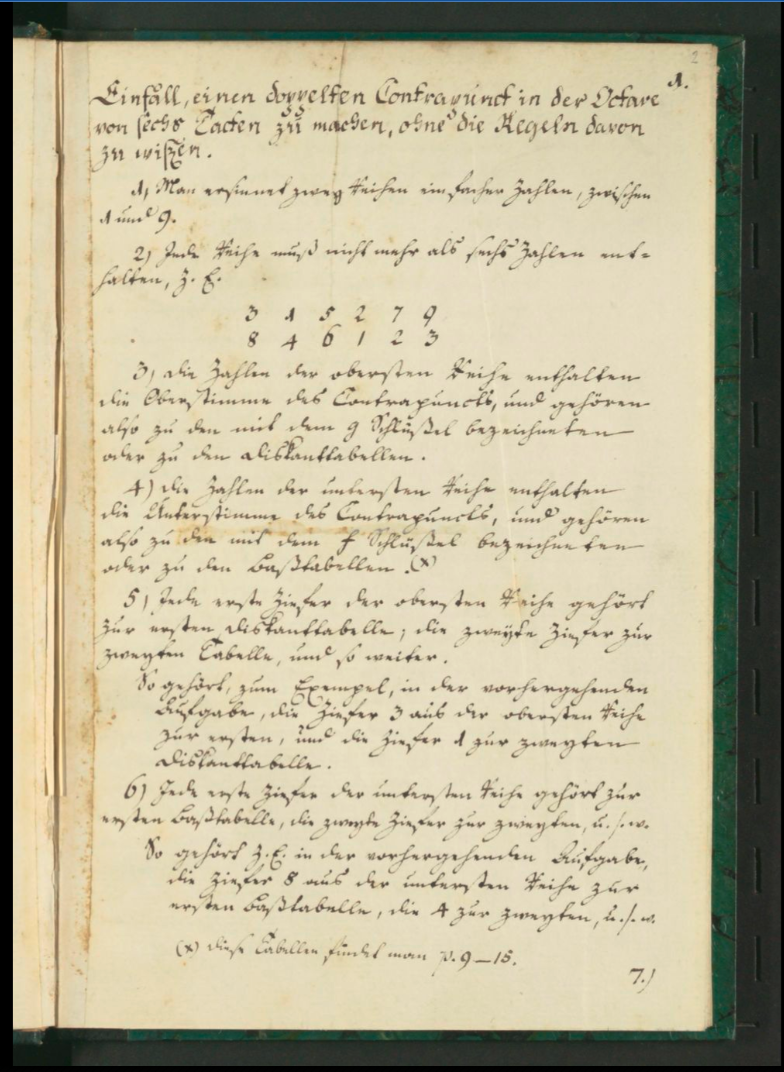 2
1.
Einfall, einen doppelten Contrapunct in der Octave
von sechs Tacten zu machen, ohne die Regeln davon
zu wißen.
1) Man ersinnet zwey Reihen einfacher Zahlen, zwischen
1 und 9.
2) Jede Reihe muß nicht mehr als sechs Zahlen ent-
halten, z. E.
3 1 5 2 7 9
8 4 6 1 2 3
3) die Zahlen der obersten Reihe enthalten
die Oberstimme des Contrapuncts, und gehören
also zu den mit dem g Schlüßel bezeichneten
oder zu den Diskanttabellen.
4) die Zahlen der untersten Reihe enthalten
die Unterstimme des Contrapuncts, und gehören
also zu den mit dem f Schlüßel bezeichneten
oder zu den Baßtabellen. (x)
5) Jede erste Ziefer der obersten Reihe gehört
zur ersten Diskanttabelle; die zweyte Ziefer zur
zweyten Tabelle, und so weiter.
So gehört, zum Exempel, in der vorhergehenden
Aufgabe, die Ziefer 3 aus der obersten Reihe
zur ersten, und die Ziefer 1 zur zweyten
Diskanttabelle.
6) Jede erste Ziefer der untersten Reihe gehört zur
ersten Baßtabelle, die zweyte Ziefer zur zweyten, u. s. w.
So gehört z. E. in der vorhergehenden Aufgabe,
die Ziefer 8 aus der untersten Reihe zur
ersten Baßtabelle, die 4 zur zweyten, u. s. w.
(x) diese Tabellen findet man p. 9 – 15.
7.)